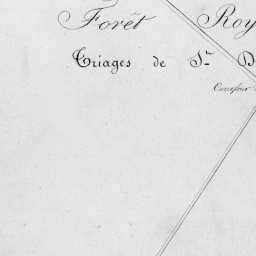 Forêt Roy
Triages de St. D
Carrefour